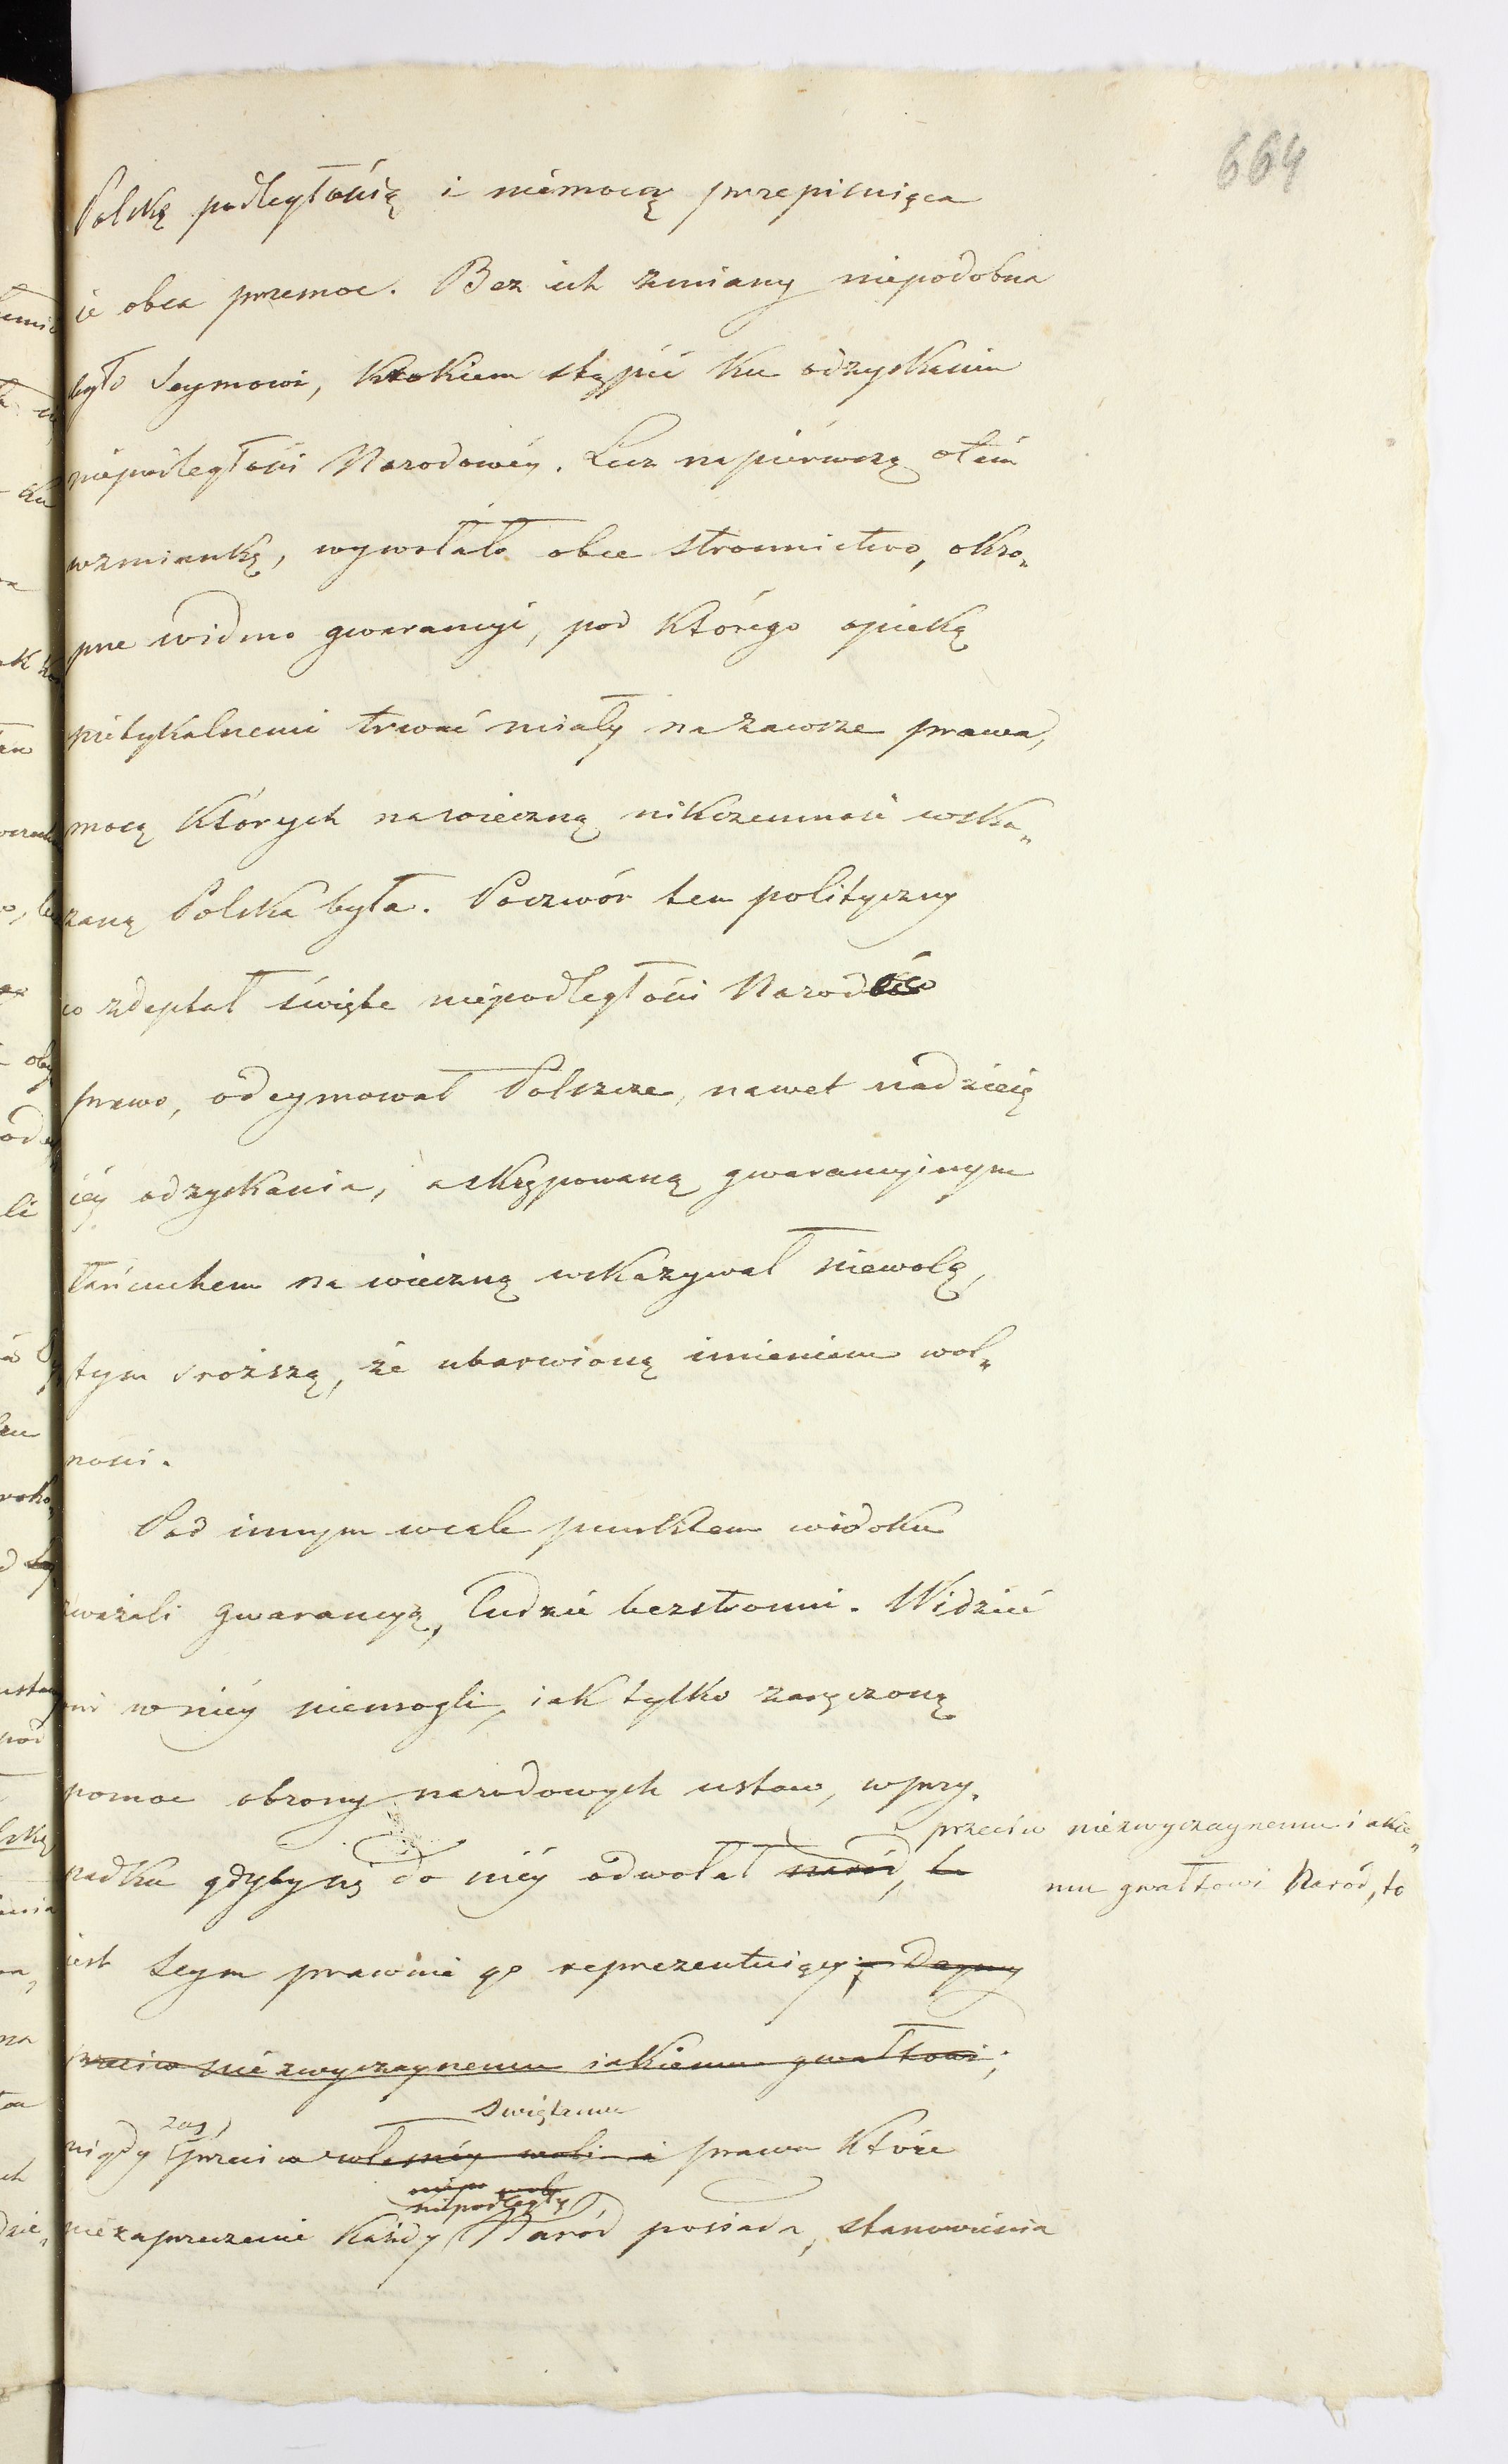 664
Polskę podległością i niemocą przepisuiąca
ie obca przemoc. Bez ich zmiany niepodobna
było Seymowi, krokiem stąpić ku odzyskaniu
niepodległości Narodowéy. Lecz napiérwszą otém
wzmiankę, wywołało obce stronnictwo, okro„
pne widmo gwarancyi, pod którego opieką
nietykalnemi trwać miały nazawsze prawa,
mocą których nawieczną nikczemność wska„
zaną Polska była. Poczwór ten polityczny
co zdeptał święte niepodległości Narodów
prawo, odeymował Polszcze, nawet nadzieię
iéy odzyskania, a skrępowaną gwarancyinym
łańcuchem na wieczną wskazywał niewolą,
tym sroższą, że ubarwioną imieniem wol„
ności.
Pod innym wcale punktem widoku
uważali gwarancyą, ludzie bezstronni. Widzieć
oni w niéy niemogli, iak tylko zaręczoną
pomoc obrony narodowych ustaw, wprzy„
przeciw niezwyczaynemu iakie„
padku gdyby się do niéy odwołał naród, to
mu gwałtowi Naród, to
iest Seym prawnie go reprezentuiący;
przeciw niezwyczaynemu iakiemu gwałtowi;
świętemu
nigdy zaś przeciw własnéy woli i prawu które
niepodległy
niezaprzeczenie każdy Naród posiada, stanowienia